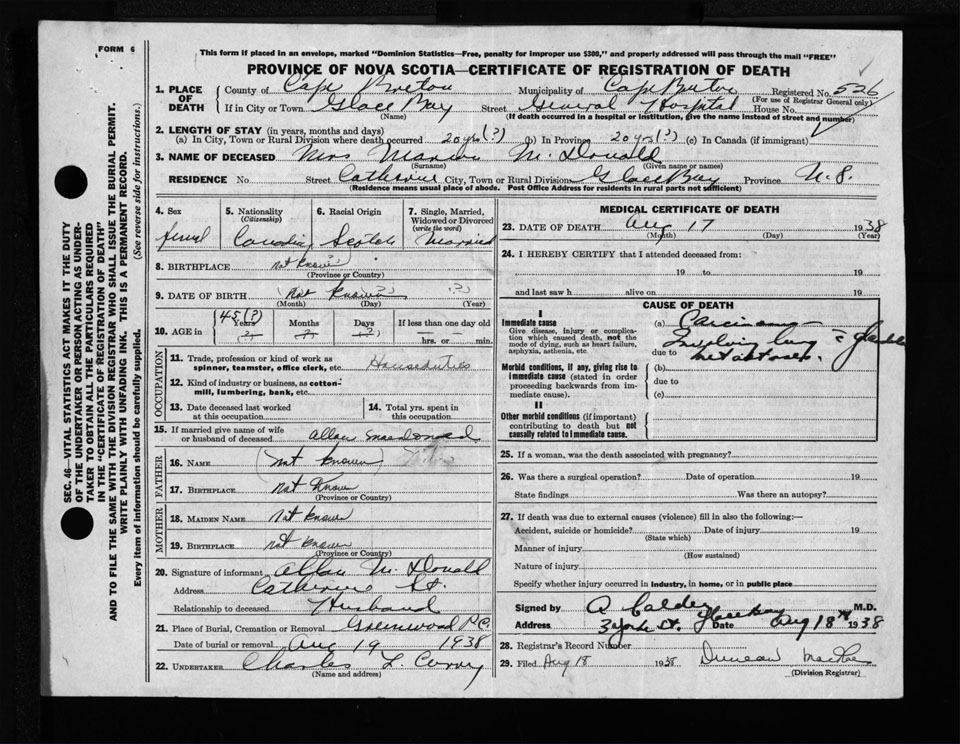 FORM 6
This form if placed in an envelope, marked "Dominion Statistics—Free, penalty for improper use $300," and properly addressed will pass through the mail "FREE"
PROVINCE OF NOVA SCOTIA—CERTIFICATE OF REGISTRATION OF DEATH
1. PLACE OF DEATH { County of Cape Breton Municipality of Cape Breton Registered No. 526
(For use of Registrar General only)
If in City or Town Glace Bay Street General Hospital House No.
(Name) (If death occurred in a hospital or institution, give the name instead of street and number)
2. LENGTH OF STAY (in years, months and days)
(a) In City, Town or Rural Division where death occurred 20 yrs (?) (b) In Province 20 yrs (?) (c) In Canada (if immigrant)
3. NAME OF DECEASED Mrs McDonald
(Surname) (Given name or names)
RESIDENCE No. Street Catherine City, Town or Rural Division Glace Bay Province N.S.
(Residence means usual place of abode. Post Office Address for residents in rural parts not sufficient)
4. Sex
5. Nationality (Citizenship)
6. Racial Origin
7. Single, Married, Widowed or Divorced (write the word)
Canadian Scotch Married
8. BIRTHPLACE not known
(Province or Country)
9. DATE OF BIRTH not known ?
(Month) (Day) (Year)
10. AGE in { 45 (?) Years ? Months ? Days ? If less than one day old hrs. or min.
OCCUPATION
11. Trade, profession or kind of work as spinner, teamster, office clerk, etc. Houseduties
12. Kind of industry or business, as cotton-mill, lumbering, bank, etc.
13. Date deceased last worked at this occupation
14. Total yrs. spent in this occupation
15. If married give name of wife or husband of deceased Allan MacDonald
FATHER
16. NAME (not known)
17. BIRTHPLACE Not Known
(Province or Country)
MOTHER
18. MAIDEN NAME Not known
19. BIRTHPLACE not known
(Province or Country)
20. Signature of informant Allan McDonald
Address Catherine St.
Relationship to deceased Husband
21. Place of Burial, Cremation or Removal Greenwood
Date of burial or removal Aug 19 1938
22. UNDERTAKER Charles L. Curry
(Name and address)
MEDICAL CERTIFICATE OF DEATH
23. DATE OF DEATH Aug 17 1938
(Month) (Day) (Year)
24. I HEREBY CERTIFY that I attended deceased from:
19 to 19
and last saw h alive on 19
CAUSE OF DEATH
I
Immediate cause
Give disease, injury or complication which caused death, not the mode of dying, such as heart failure, asphyxia, asthenia, etc.
(a) Carcinoma
Involving lung
due to metastases.
Morbid conditions, if any, giving rise to immediate cause (stated in order proceeding backwards from immediate cause).
(b)
due to
(c)
II
Other morbid conditions (if important) contributing to death but not causally related to immediate cause.
25. If a woman, was the death associated with pregnancy?
26. Was there a surgical operation? Date of operation 19
State findings Was there an autopsy?
27. If death was due to external causes (violence) fill in also the following:—
Accident, suicide or homicide? Date of injury 19
(State which)
Manner of injury
(How sustained)
Nature of injury
Specify whether injury occurred in industry, in home, or in public place
Signed by A Calder M.D.
Address 3 York St. Glace Bay Date Aug 18th 1938
28. Registrar's Record Number
29. Filed Aug 18 1938 Duncan MacRae
(Division Registrar)
SEC. 46—VITAL STATISTICS ACT MAKES IT THE DUTY
OF THE UNDERTAKER OR PERSON ACTING AS UNDER-
TAKER TO OBTAIN ALL THE PARTICULARS REQUIRED
IN THE "CERTIFICATE OF REGISTRATION OF DEATH"
AND TO FILE THE SAME WITH THE DIVISION REGISTRAR WHO SHALL ISSUE THE BURIAL PERMIT.
WRITE PLAINLY WITH UNFADING INK. THIS IS A PERMANENT RECORD.
Every item of information should be carefully supplied. (See reverse side for instructions.)